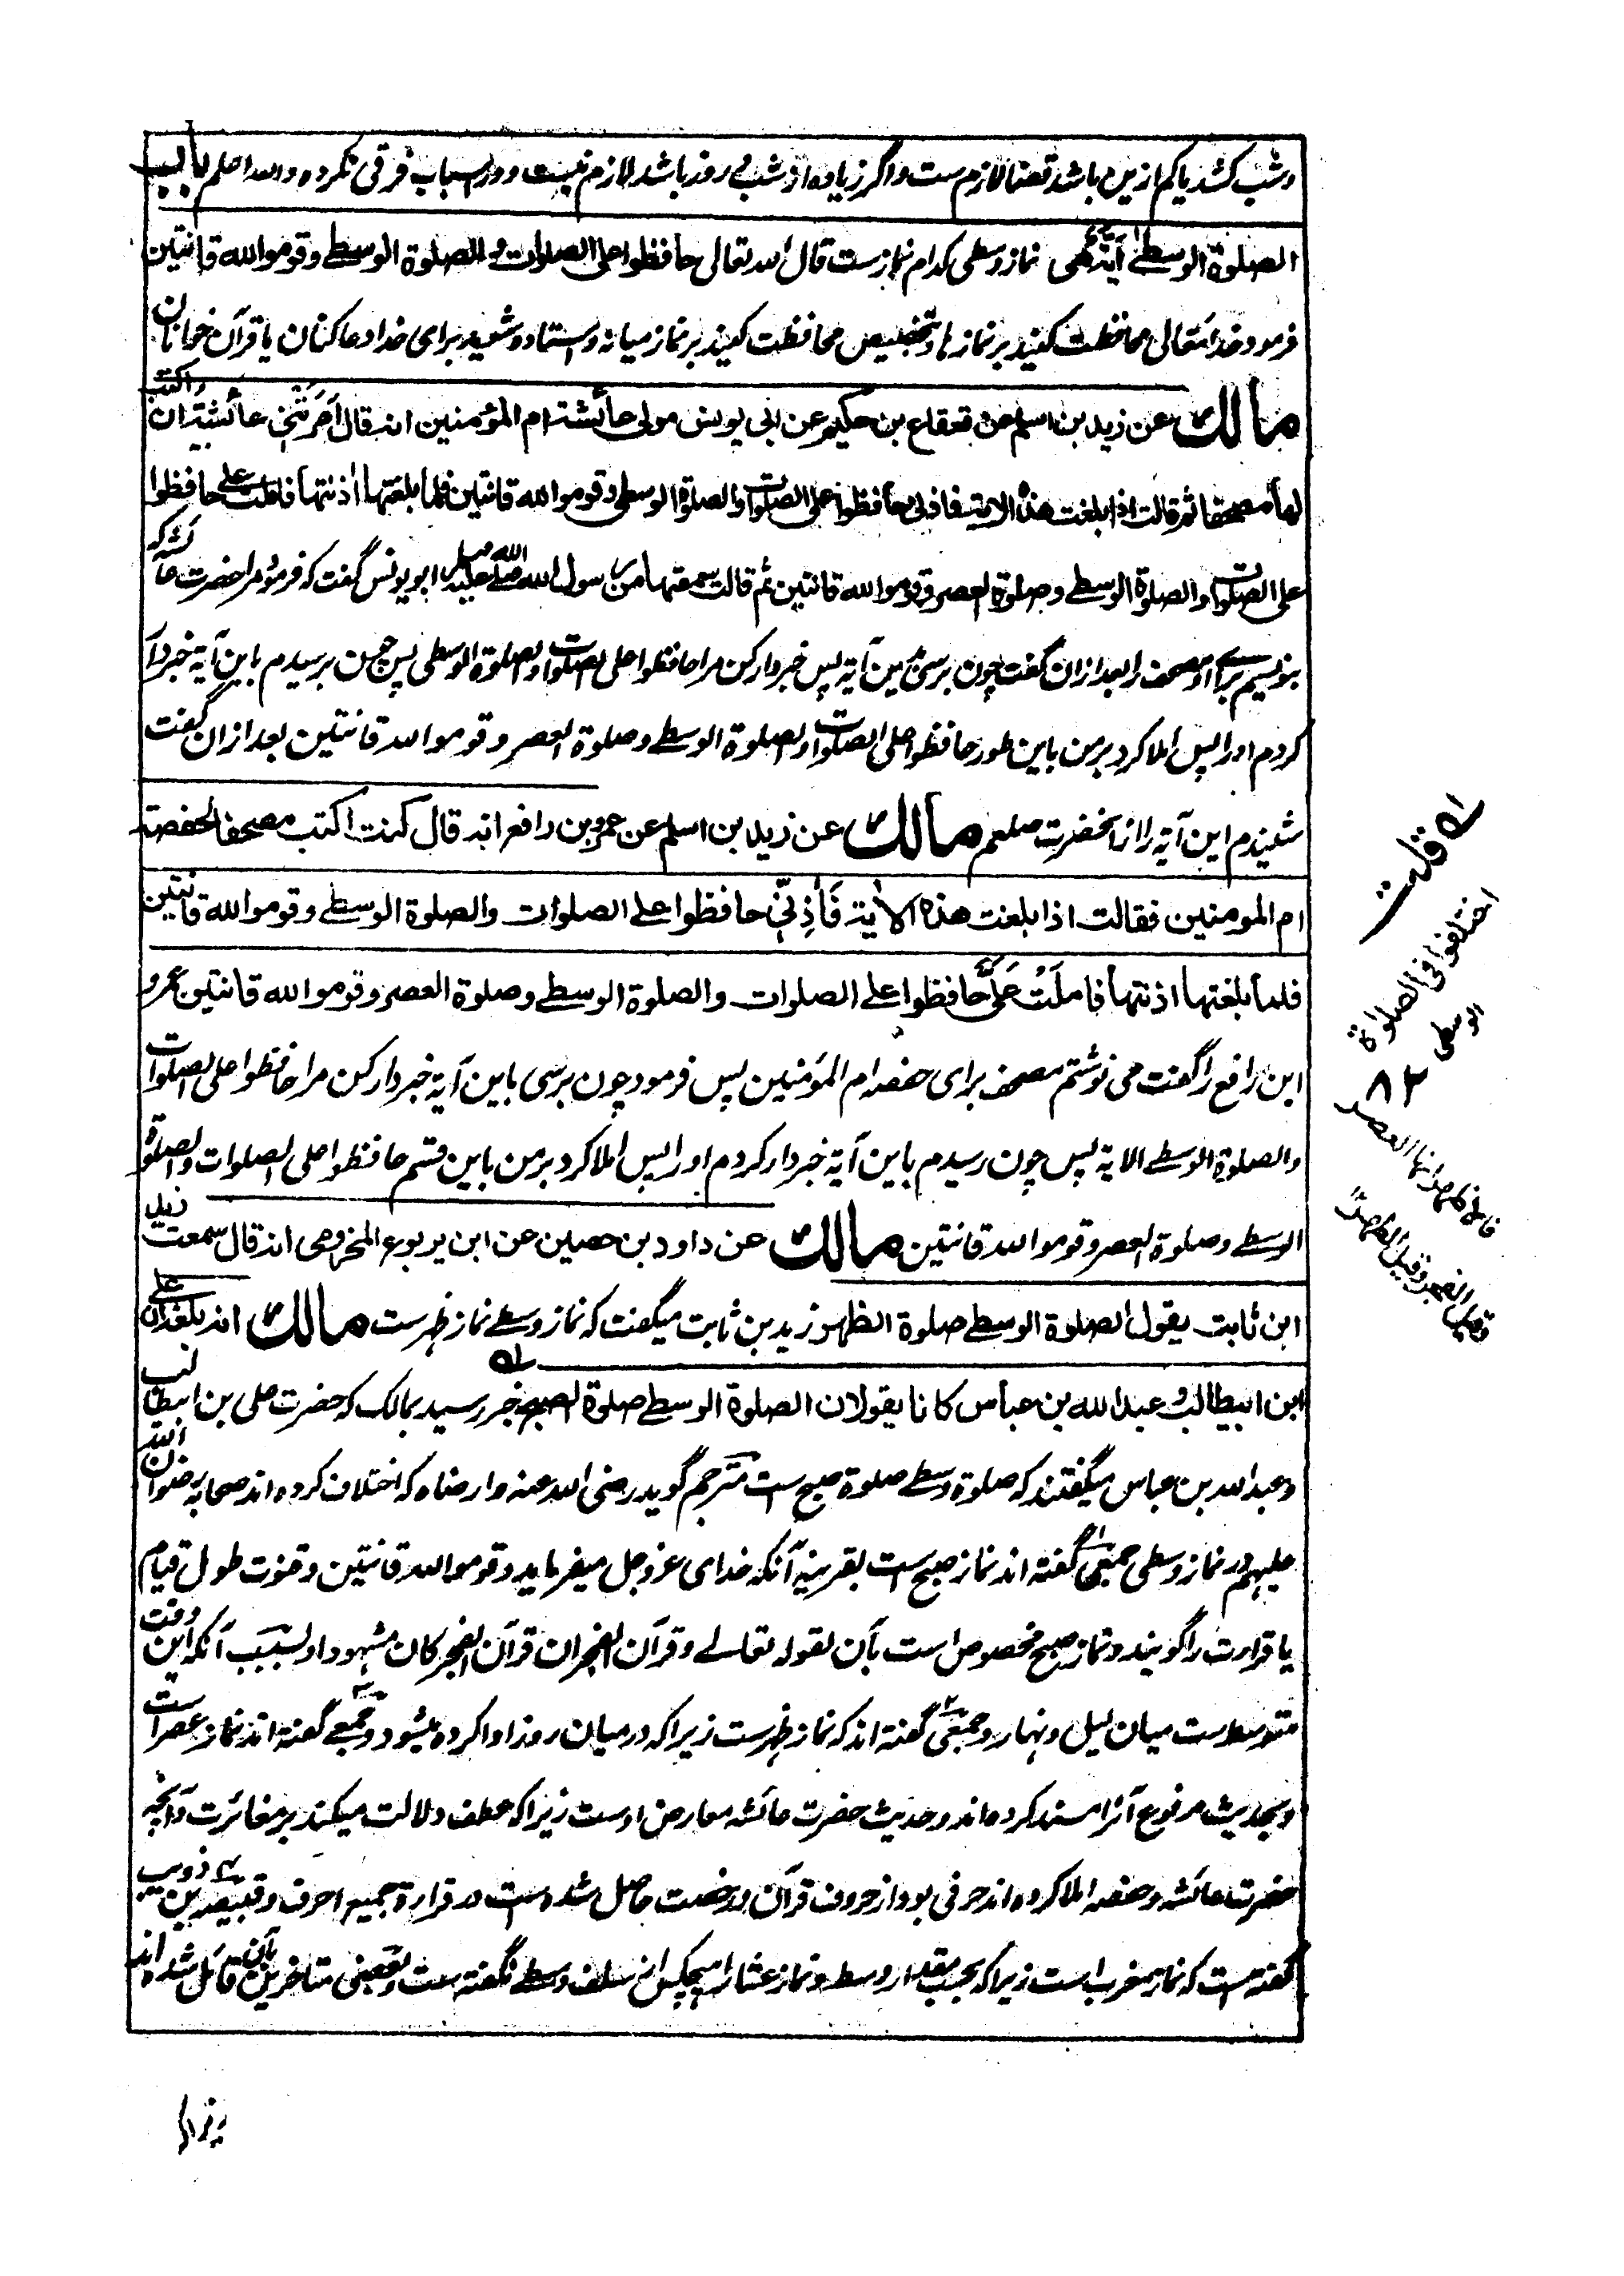 و شب کشد یا کم ازین باشد قضا لازم ست و اگر زیاده از شب و روز باشد لازم نیست و در اسباب فرقی نکرده والله اعلم باب
الصلوة الوسطے آیة هی نماز وسطی کدام نماز ست قال الله تعالی حافظوا علی الصلوات والصلوة الوسطے وقوموا لله قانتین
فرمود خدا تعالی محافظت کنید بر نماز ها و بتخصیص محافظت کنید بر نماز میانه و استاده شوید برای خدا دعا کنان یا قرآن خوانان
مالك عن زید بن اسلم عن قعقاع بن حکیم عن ابی یونس مولی عائشة ام المؤمنین انه قال اَمَرَتْنِی عائشة ان اکتب
لها مصحفا ثم قالت اذا بلغت هذه الایة فاذنی حافظوا علی الصلوات والصلوة الوسطی وقوموا لله قانتین فلما بلغتها اذنتها فاملت علی حافظوا
علی الصلوات والصلوة الوسطے وصلوة العصر وقوموا لله قانتین ثم قالت سمعتها من رسول الله صلے الله علیه وسلم ابو یونس گفت که فرمود مرا حضرت عائشه که
بنویسم برای او مصحف را بعد ازان گفت چون برسی باین آیة پس خبردار کن مرا حافظوا علی الصلوات والصلوة الوسطی پس چون برسیدم باین آیة خبردار
کردم او را پس املا کرد بر من باین طور حافظوا علی الصلوات والصلوة الوسطے وصلوة العصر وقوموا لله قانتین بعد ازان گفت
شنیدم این آیة را از آنحضرت صلعم مالك عن زید بن اسلم عن عمرو بن رافع انه قال کنت اکتب مصحفا لحفصة
ام المومنین فقالت اذا بلغت هذه الاٰیة فَاٰذِنِّی حافظوا علے الصلوات والصلوة الوسطے وقوموا لله قانتین
فلما بلغتها اذنتها فاملَتْ عَلَیَّ حافظوا علے الصلوات والصلوة الوسطے وصلوة العصر وقوموا لله قانتین عمرو
ابن رافع را گفت می نوشتم مصحف برای حفصه ام المؤمنین پس فرمود چون برسی باین آیة خبردار کن مرا حافظوا علی الصلوات
والصلوة الوسطے الایة پس چون رسیدم باین آیة خبردار کردم او را پس املا کرد بر من باین قسم حافظوا علی الصلوات والصلوة
الوسطے وصلوة العصر وقوموا لله قانتین مالك عن داود بن حصین عن ابن یربوع المخزومی انه قال سمعت زید
ابن ثابت یقول الصلوة الوسطے صلوة الظهر زید بن ثابت میگفت که نماز وسطے نماز ظهرست مالك انه بلغه ان علی
ابن ابیطالب وعبد الله بن عباس کانا یقولان الصلوة الوسطے صلوة الصبح خبر رسید بمالک که حضرت علی بن ابیطالب
وعبد الله بن عباس میگفتند که صلوة وسطے صلوة صبح ست مترجم گوید رضی الله عنه وارضاه که اختلاف کرده اند صحابه رضوان الله
علیهم در نماز وسطی جمعی گفته اند نماز صبح ست بقرینه آنکه خدای عز و جل میفرماید وقوموا لله قانتین وقنوت طول قیام
یا قرارت را گویند و نماز صبح مخصوص است بآن لقوله تعالے وقرآن الفجر ان قرآن الفجر کان مشهودا و بسبب آنکه این وقت
متوسط ست میان لیل و نهار و جمعی گفته اند که نماز ظهرست زیرا که در میان روز ادا کرده میشود و جمعے گفته اند نماز عصر است
و بحدیث مرفوع آنرا مسند کرده اند و حدیث حضرت عائشه معارض اوست زیرا که عطف دلالت میکند بر مغائرت و آنچه
حضرت عائشه و حفصه املا کرده اند حرفی بود از حروف قرآن و رخصت حاصل شده ست در قرارة جمیع احرف و قبیصه بن ذویب
گفته ست که نماز مغرب است زیرا که بحسب مقدار وسط و نماز عشا را هیچکس از سلف وسطے نگفته ست و بعضی متاخرین بآن قائل شده اند
له قلت
اختلفوا فی الصلواة
الوسطی
۸۲
قیل الفجر وقیل الظهر